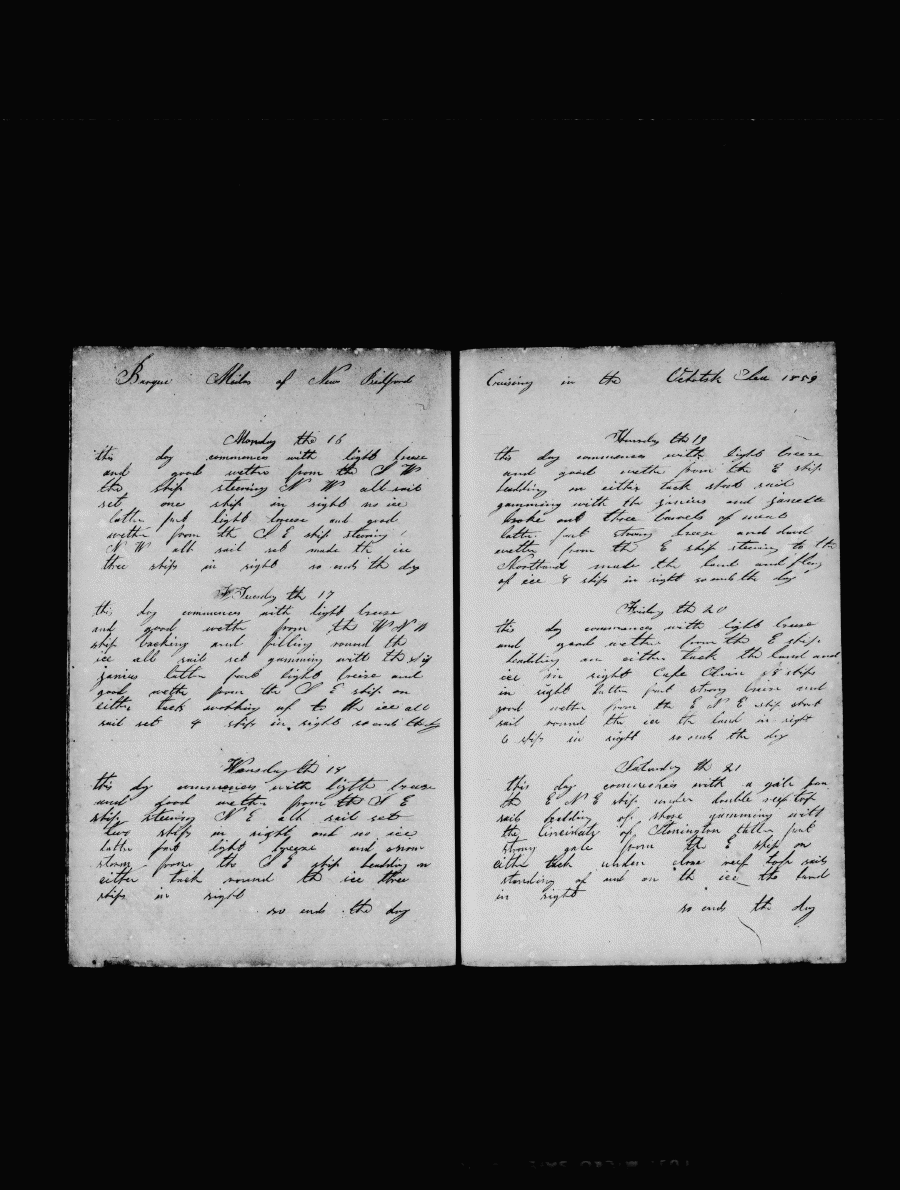 Barque Milos of New Bedford
Monday the 16
this day commences with light breese
and good wether from the S W
the ship steering N W all sail
set one ship in right no ice
latter part light breese and good
wether from the S E ship steering
N W all sail set made the ice
three ships in right so ends the day
Tuesday the 17
this day commences with light breese
and good wether from the W N W
ship backing and filling round the
ice all sail set gamming with the
latter part light breise and
good wether from the S E ship on
either tack working up to the ice all
sail set 4 ships in right so ends the day
Wensday the 18
this day commences with light breese
and good wether from the S E
ship steering N E all sail set
two ships in right and no ice
latter part light breeze and snow
storm from the S E ship headding on
either tack round the ice three
ships in right
so ends the day
Cruising in the Ochotsk Sea 1859
Thursday the 19
this day commences with light breese
and good wether from the E ship
hedding on either tack short sail
gamming with the and
broke out three barrels of meat
latter part strong breese and
wether from the E ship steering to the
Northard made the land and plenty
of ice 8 ship in right so ends the day
Friday the 20
this day commences with light breese
and good wether from the E ship
hedding on either tack the land and
ice in right Cape 18 ships
in right latter part strong breese and
good wether from the E N E ship short
sail round the ice the land in right
6 ships in right so ends the day
Saturday the 21
this day commences with a gale from
the E N E ship under double reef top
sail hedding of shore gamming with
the of Stonington latter part
strong gale from the E ship on
either tack under close reef top sails
standing of and on the ice the land
in right
so ends the day